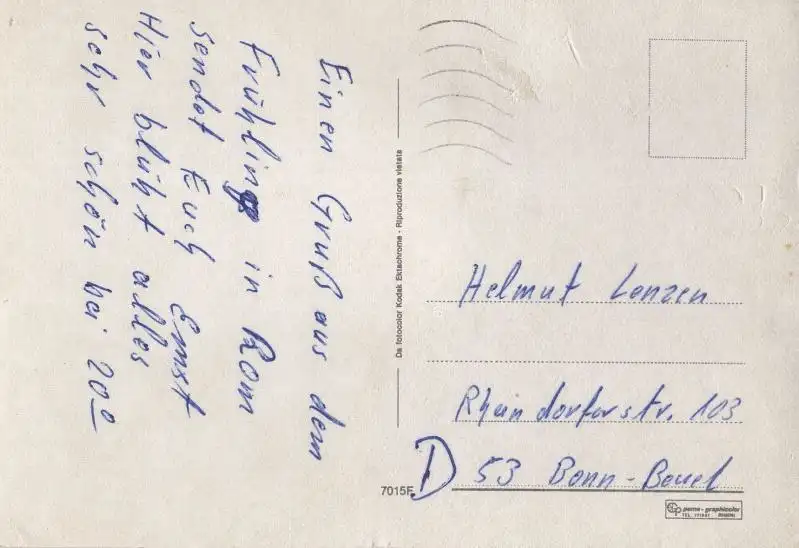 Einen Gruß aus dem
Frühling in Rom
sendet Euch Ernst
Hier blüht alles
sehr schön bei 20°
Da fotocolor Kodak Ektachrome - Riproduzione vietata
Helmut Lenzen
Rheindorferstr. 103
D 53 Bonn-Beuel
7015F